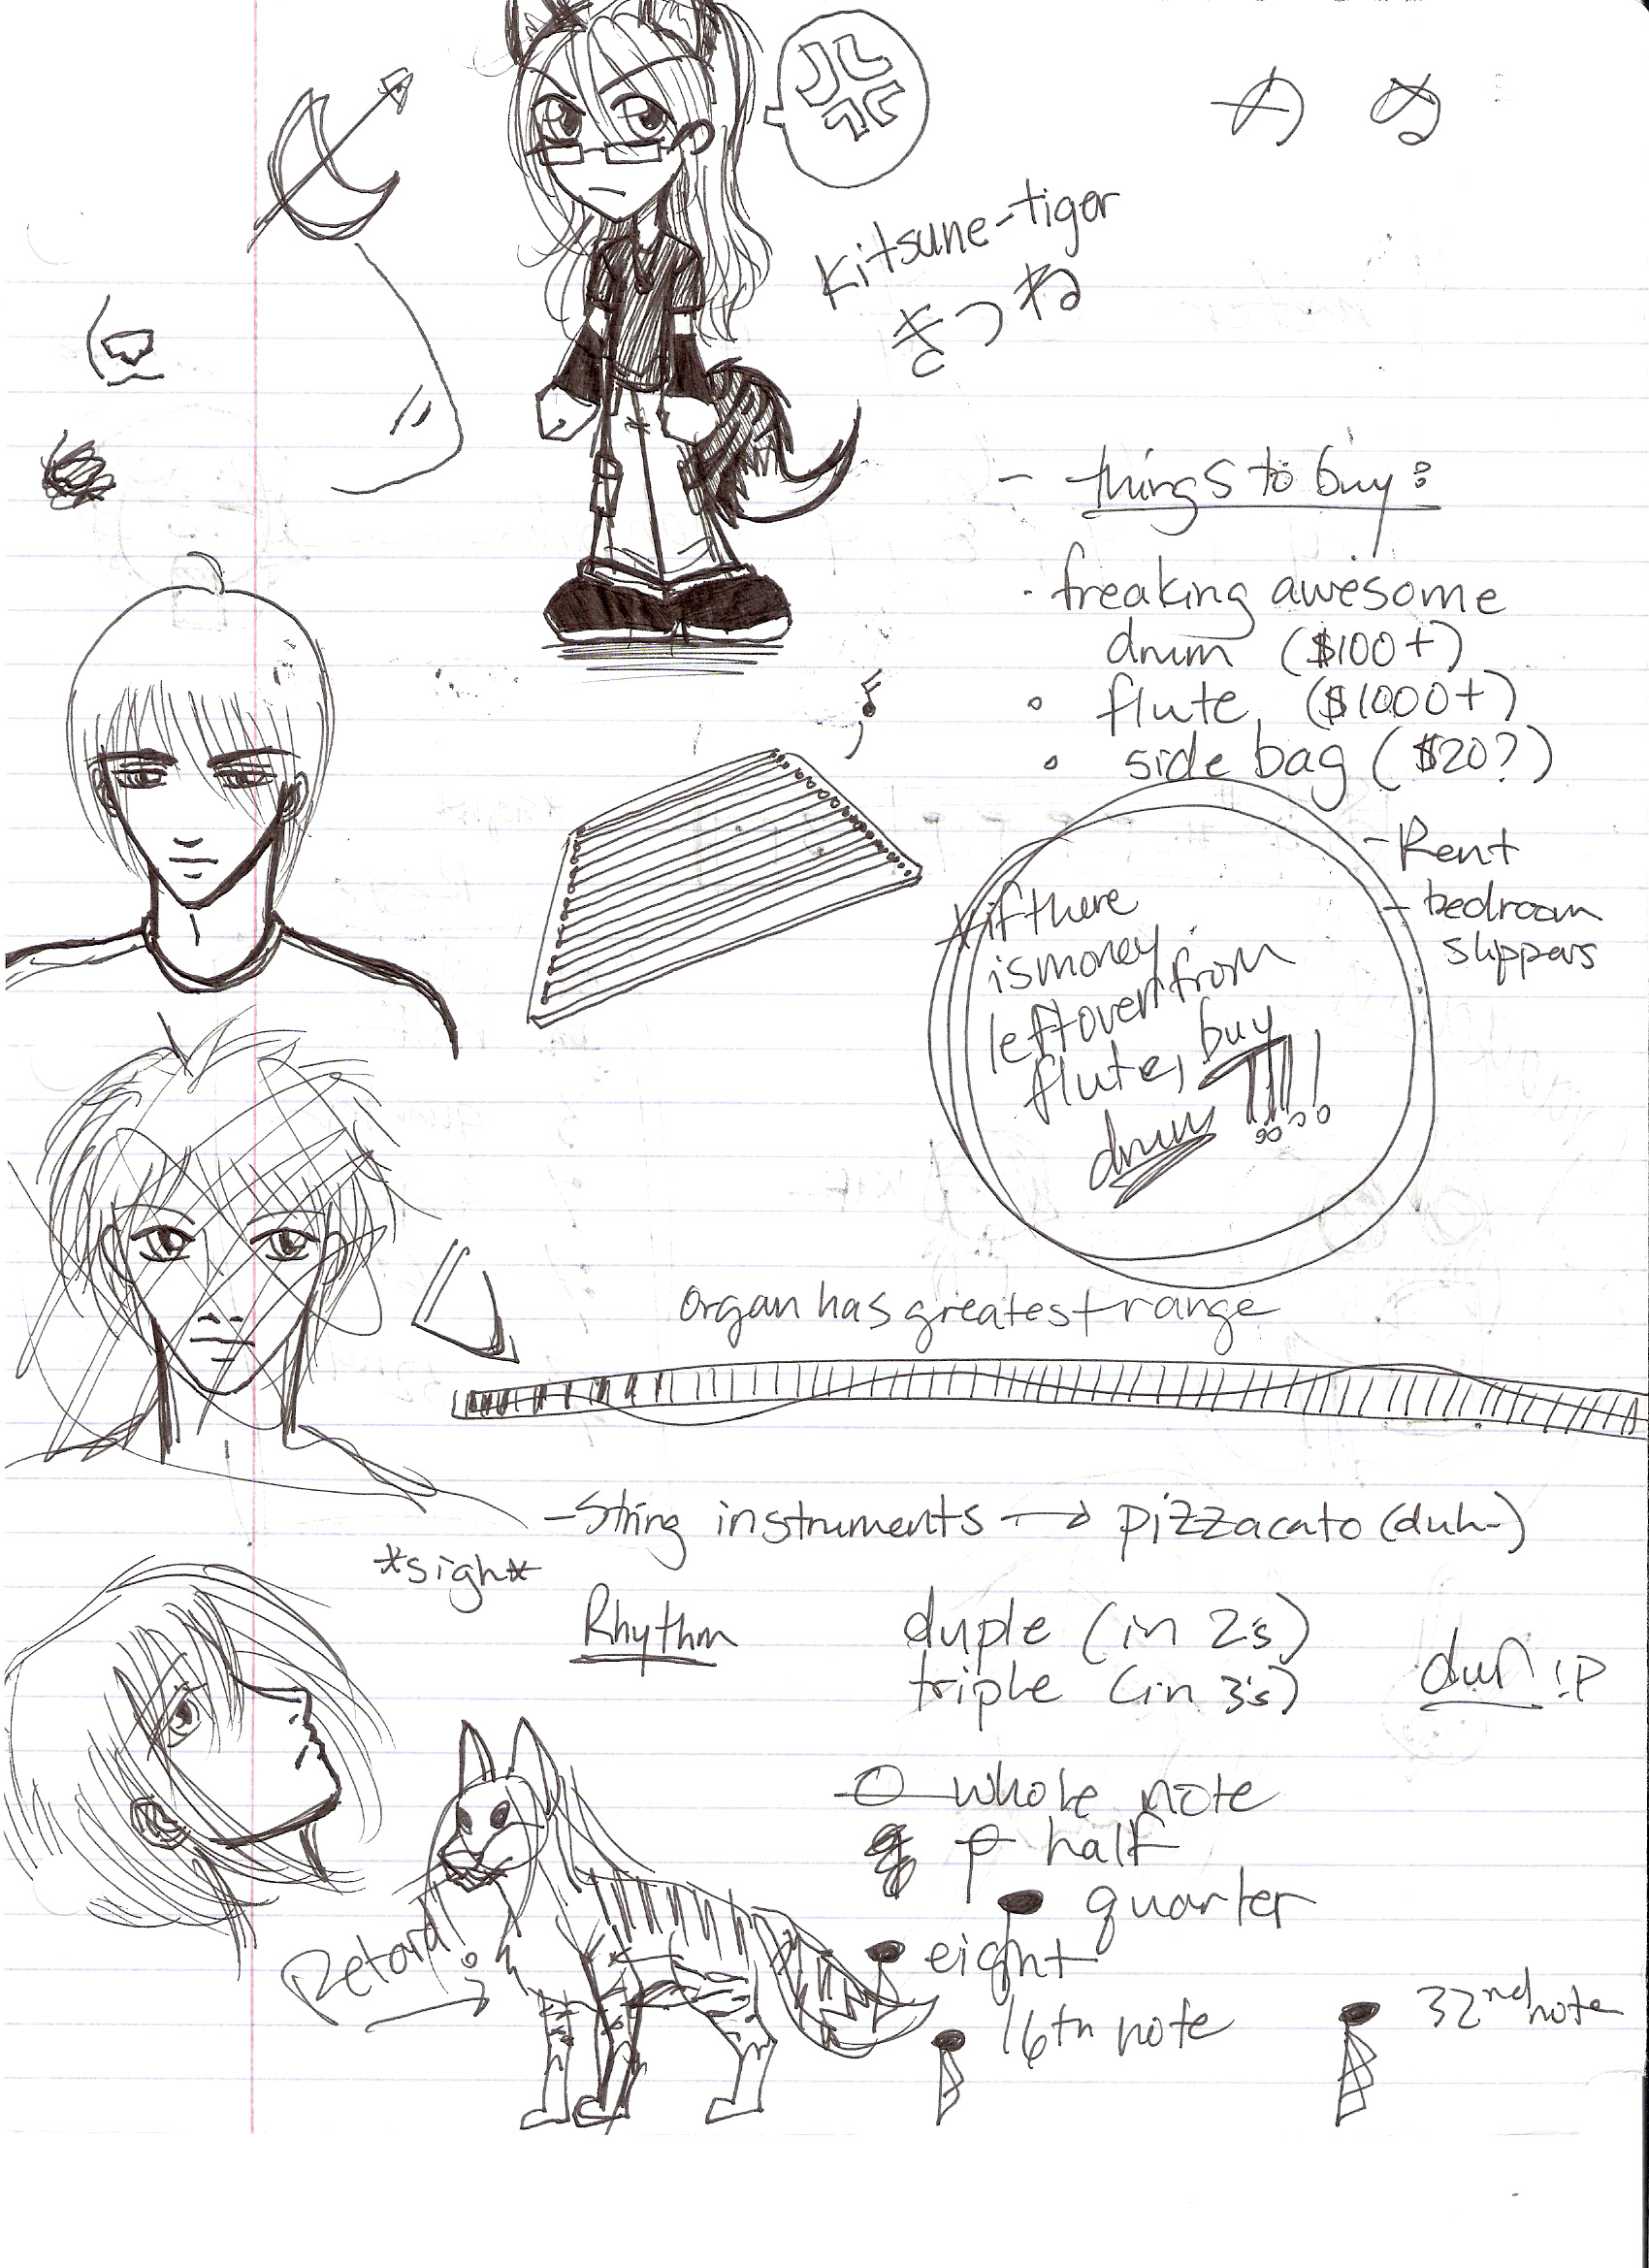 め ぬ
Kitsune-tiger
きつね
- things to buy:
· freaking awesome
drum ($100+)
· flute ($1000+)
· side bag ($20?)
- Rent
- bedroom
slippers
*if there
is money
leftover from
flute, buy
drum !!!!
organ has greatest range
- String instruments → pizzacato (duh-)
*sigh*
Rhythm
duple (in 2's)
triple (in 3's)
duh !P
whole note
half
quarter
Retard!
eight
16th note
32nd note